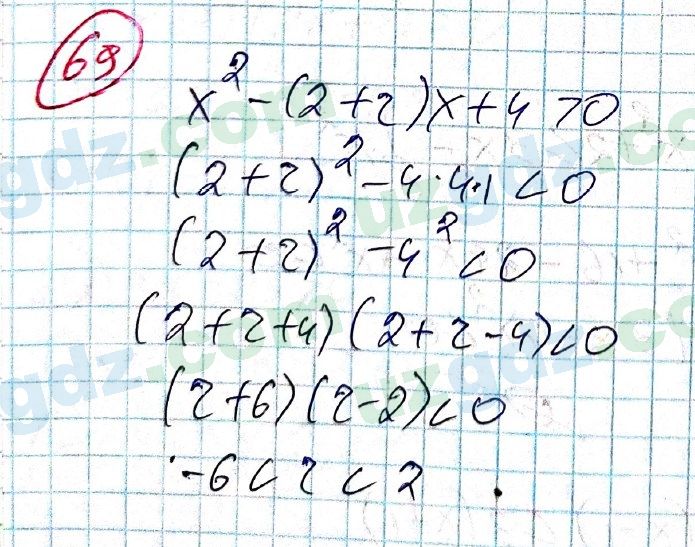 69
x² - (2 + r)x + 4 > 0
(2 + r)² - 4 · 4 · 1 < 0
(2 + r)² - 4² < 0
(2 + r + 4)(2 + r - 4) < 0
(r + 6)(r - 2) < 0
-6 < r < 2
uzgdz.com